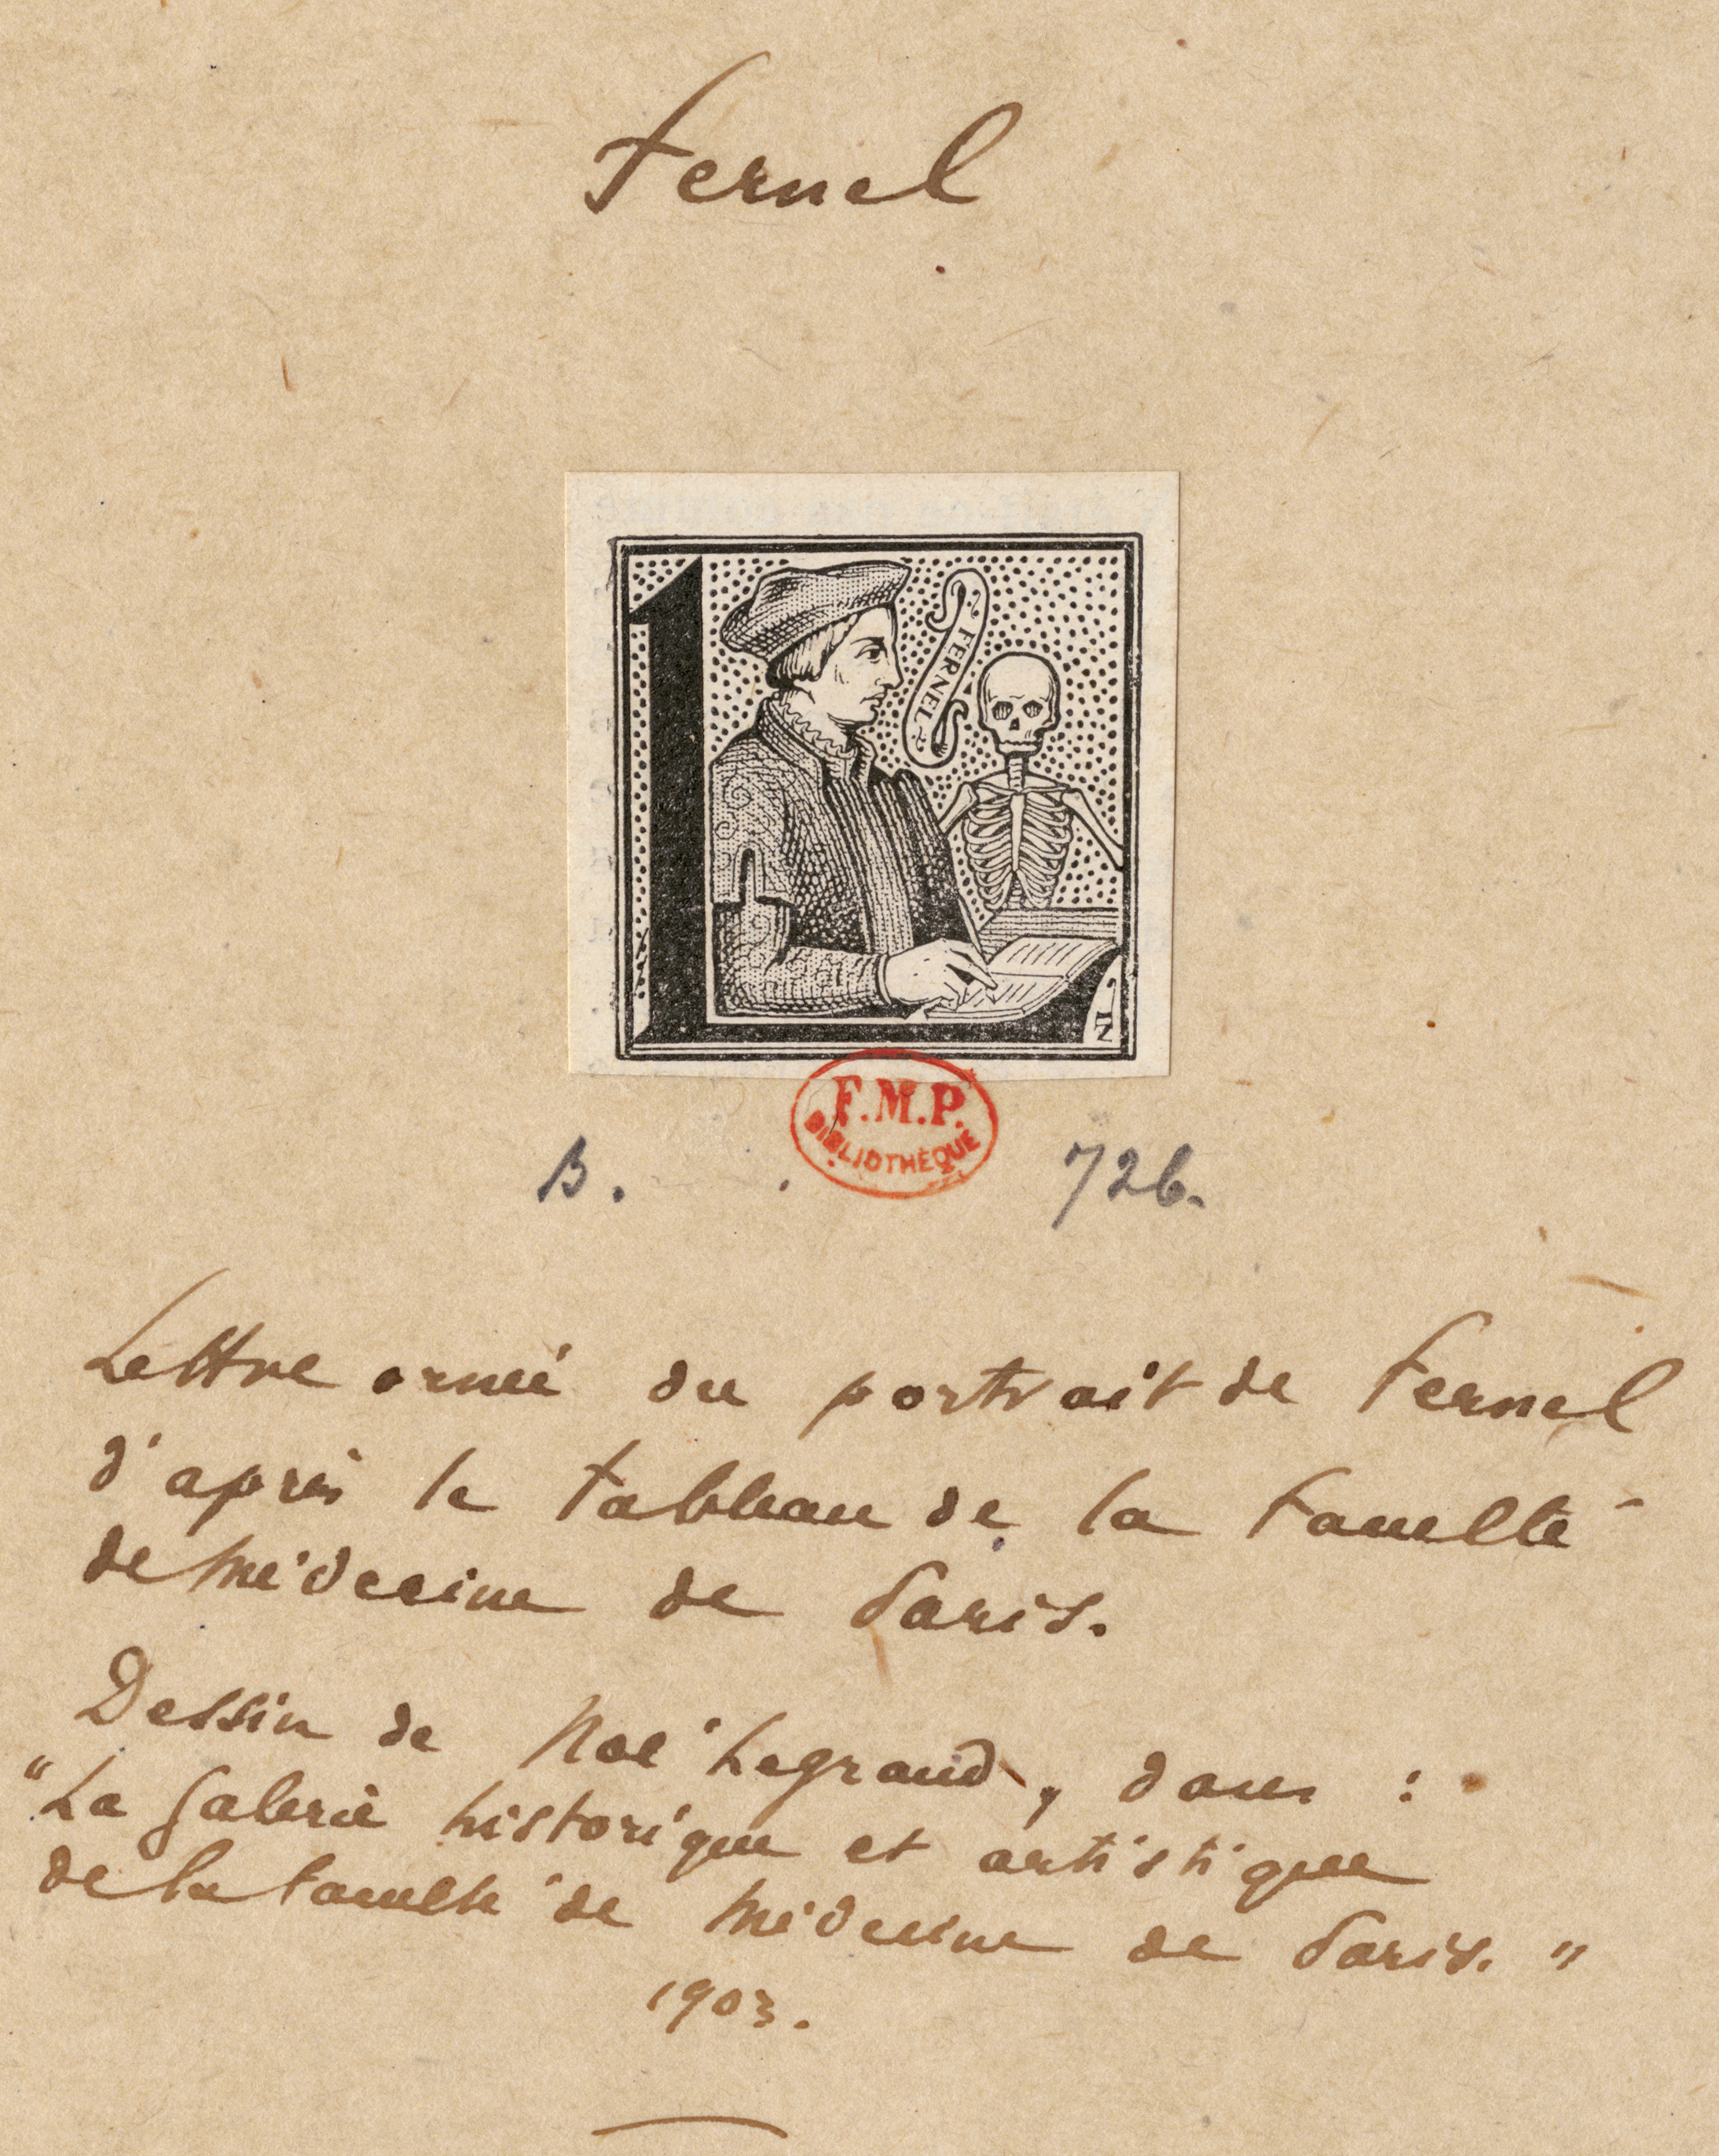 Fernel
L
FERNEL
F.M.P.
BIBLIOTHÈQUE
B. 726.
Lettre ornée du portrait de Fernel
d'après le tableau de la Faculté
de Médecine de Paris.
Dessin de Noé Legrand, dans :
"La Galerie historique et artistique
de la Faculté de Médecine de Paris."
1903.